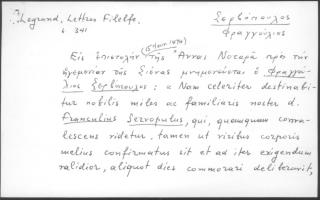 Legrand, Lettres Filelfe.
σ. 341
Σερβόπουλος
Φραγγούλιος
Εἰς ἐπιστολὴν τῆς Ἄννας Νοταρᾶ πρὸς τὴν
ἡγεμονίαν τῆς Σιένας μνημονεύεται ὁ Φραγγού-
λιος Σερβόπουλος: « Nam celeriter destinabi-
tur nobilis miles ac familiaris noster d.
Franculius Servopulus, qui, quamquam conva-
lescens videtur, tamen ut viribus corporis
melius confirmatus sit et ad iter exigendum
validior, aliquot dies commorari deliberavit,